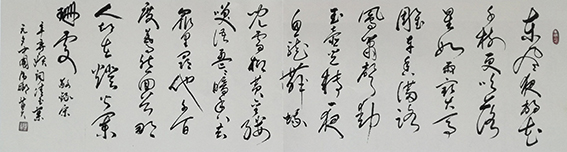 東風夜放花
千樹更吹落
星如雨寶馬
雕車香滿路
鳳簫聲動
玉壺光轉一夜
魚龍舞蛾
兒雪柳黃金縷
笑語盈盈暗香去
眾里尋他千百
度驀然回首那
人卻在燈火闌
珊處 敬錄宋
辛棄疾詞青玉案
元夕